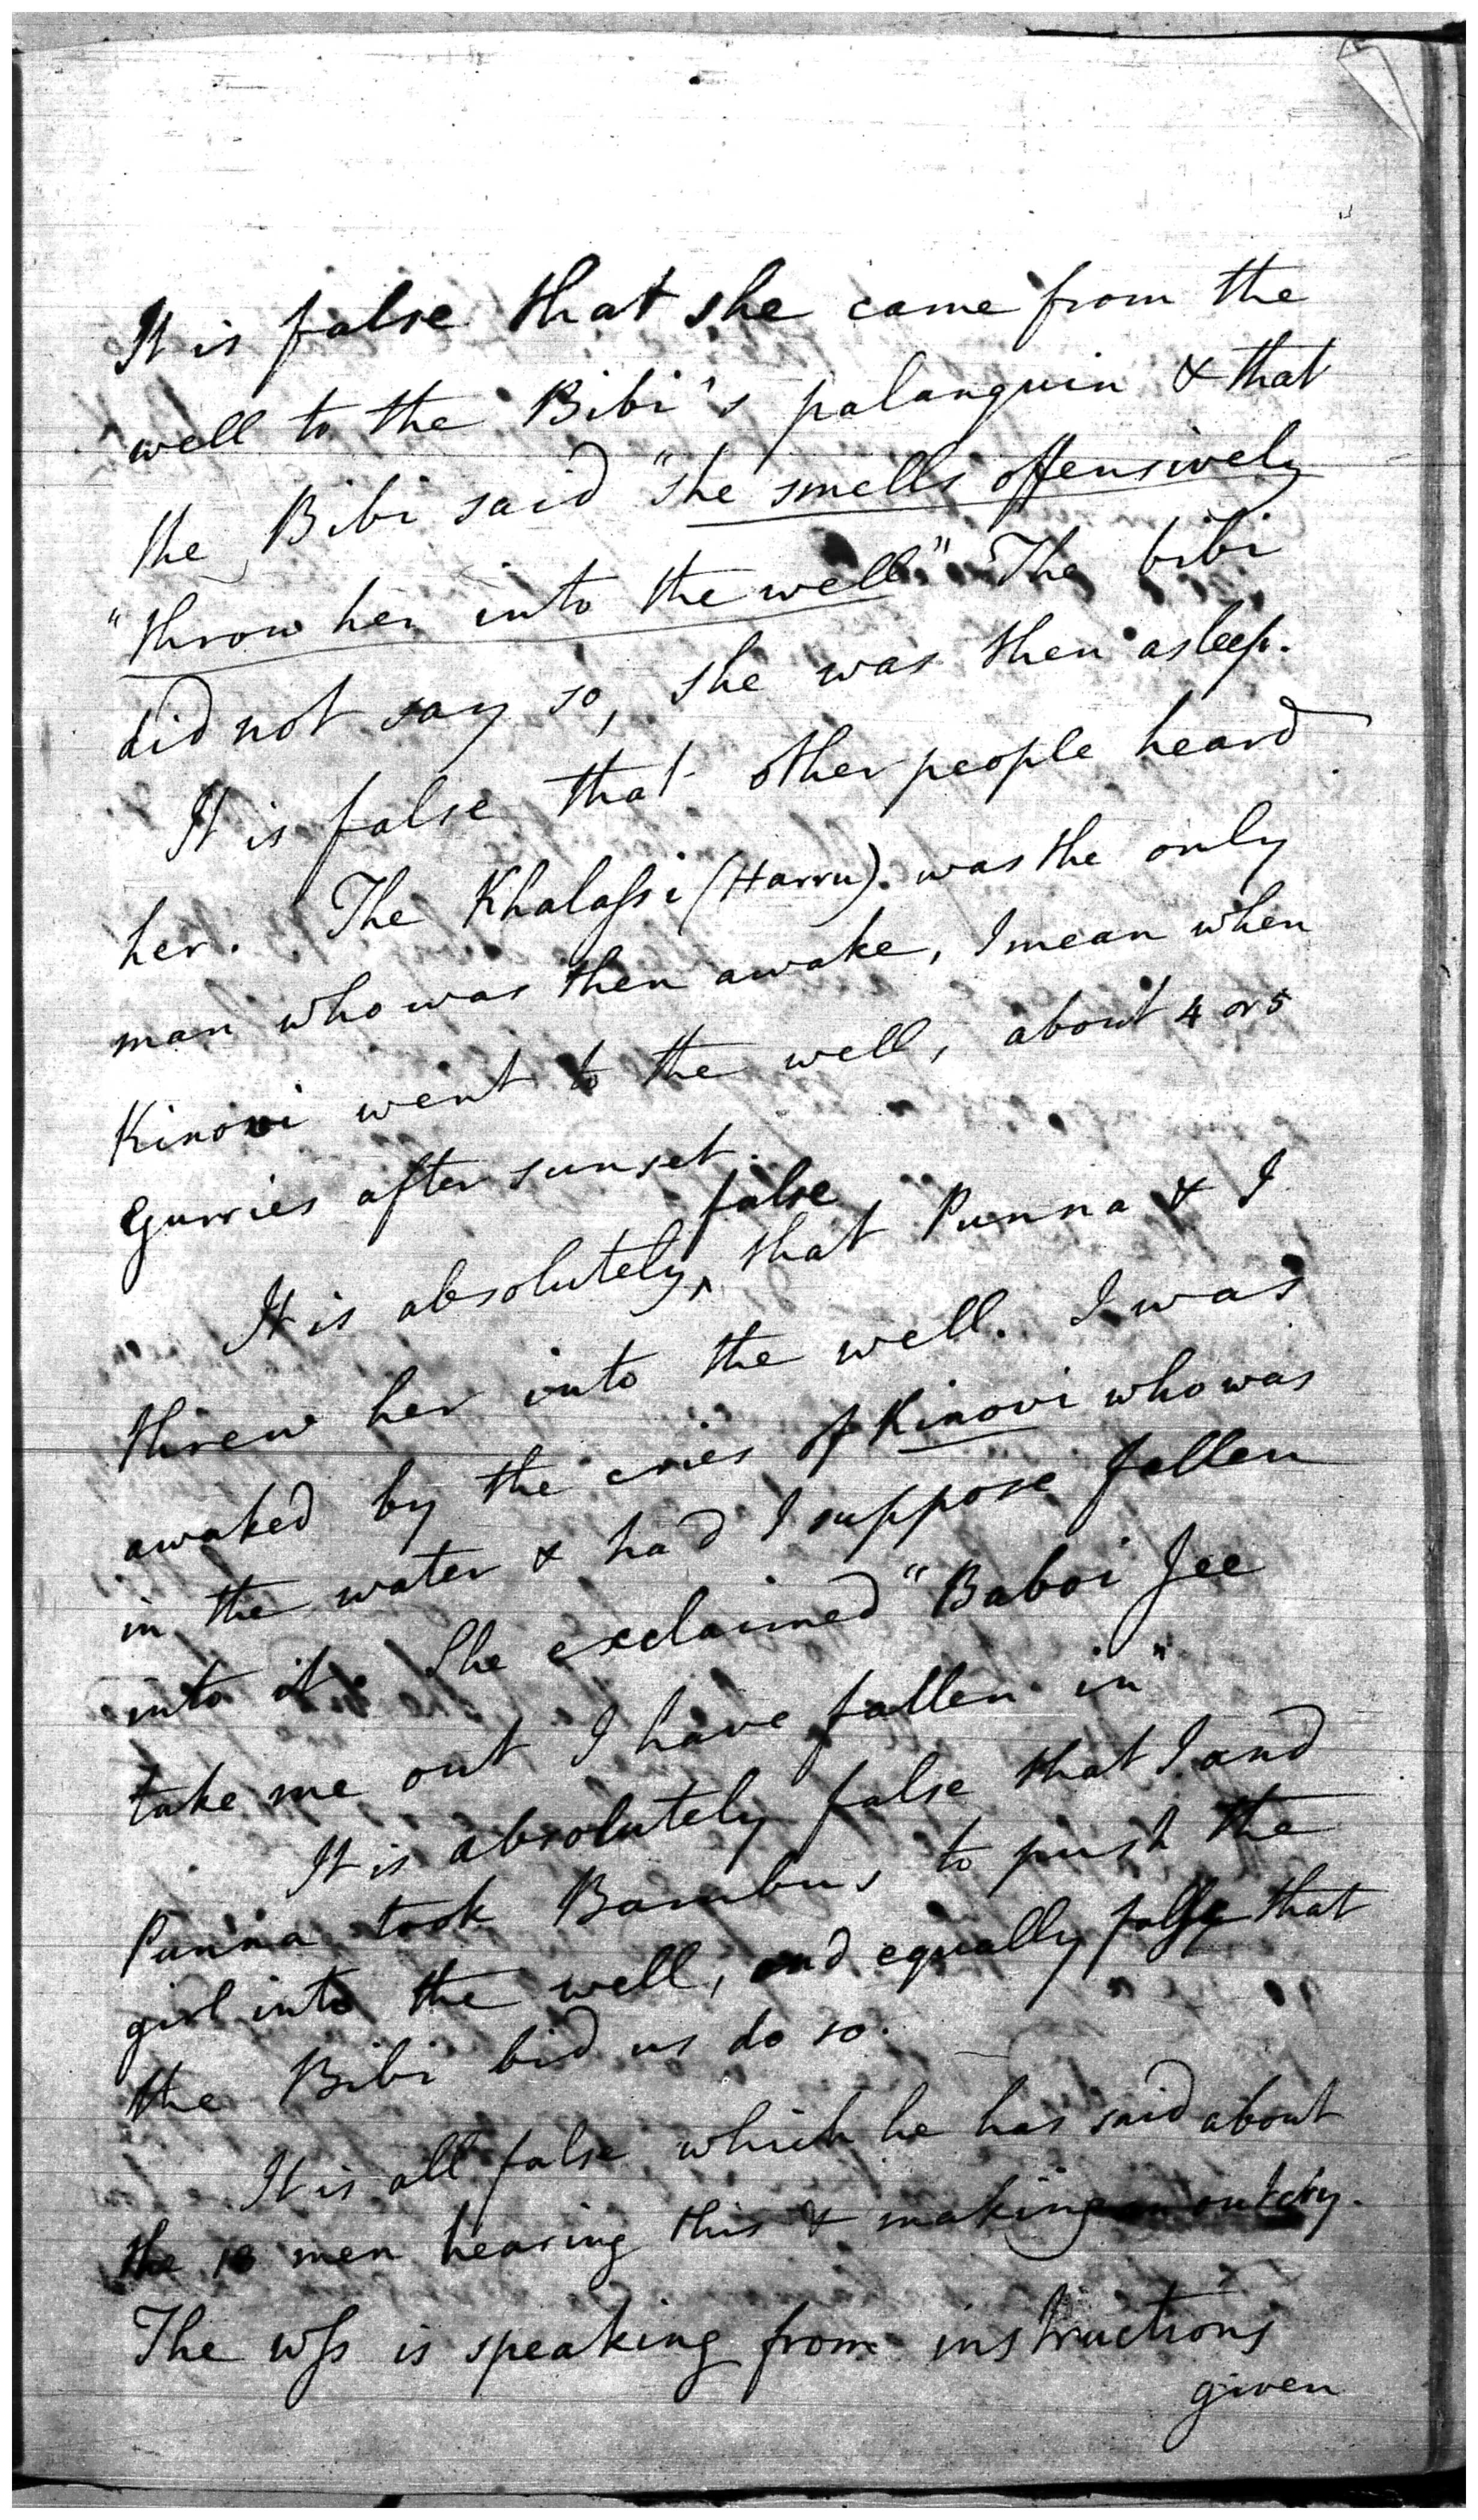 It is false that she came from the
well to the Bibi's palanquin & that
the Bibi said "she smells offensively
"throw her into the well" The bibi
did not say so, she was then asleep.
It is false that other people heard
her. The Khalaſsi (Harru) was the only
man who was then awake, I mean when
Kinovi went to the well, about 4 or 5
Gurries after sunset.
false
It is absolutely ^ that Punna & I
threw her into the well. I was
awaked by the cries of Kinovi who was
in the water & had I suppose fallen
into it. She exclaimed "Baboi Jee
take me out I have fallen in"
It is absolutely false that I and
Punna took Bambus to push the
girl into the well, and equally false that
the Bibi bid us do so.
It is all false which he has said about
the men hearing this & making outcry.
The wſs is speaking from instructions
given